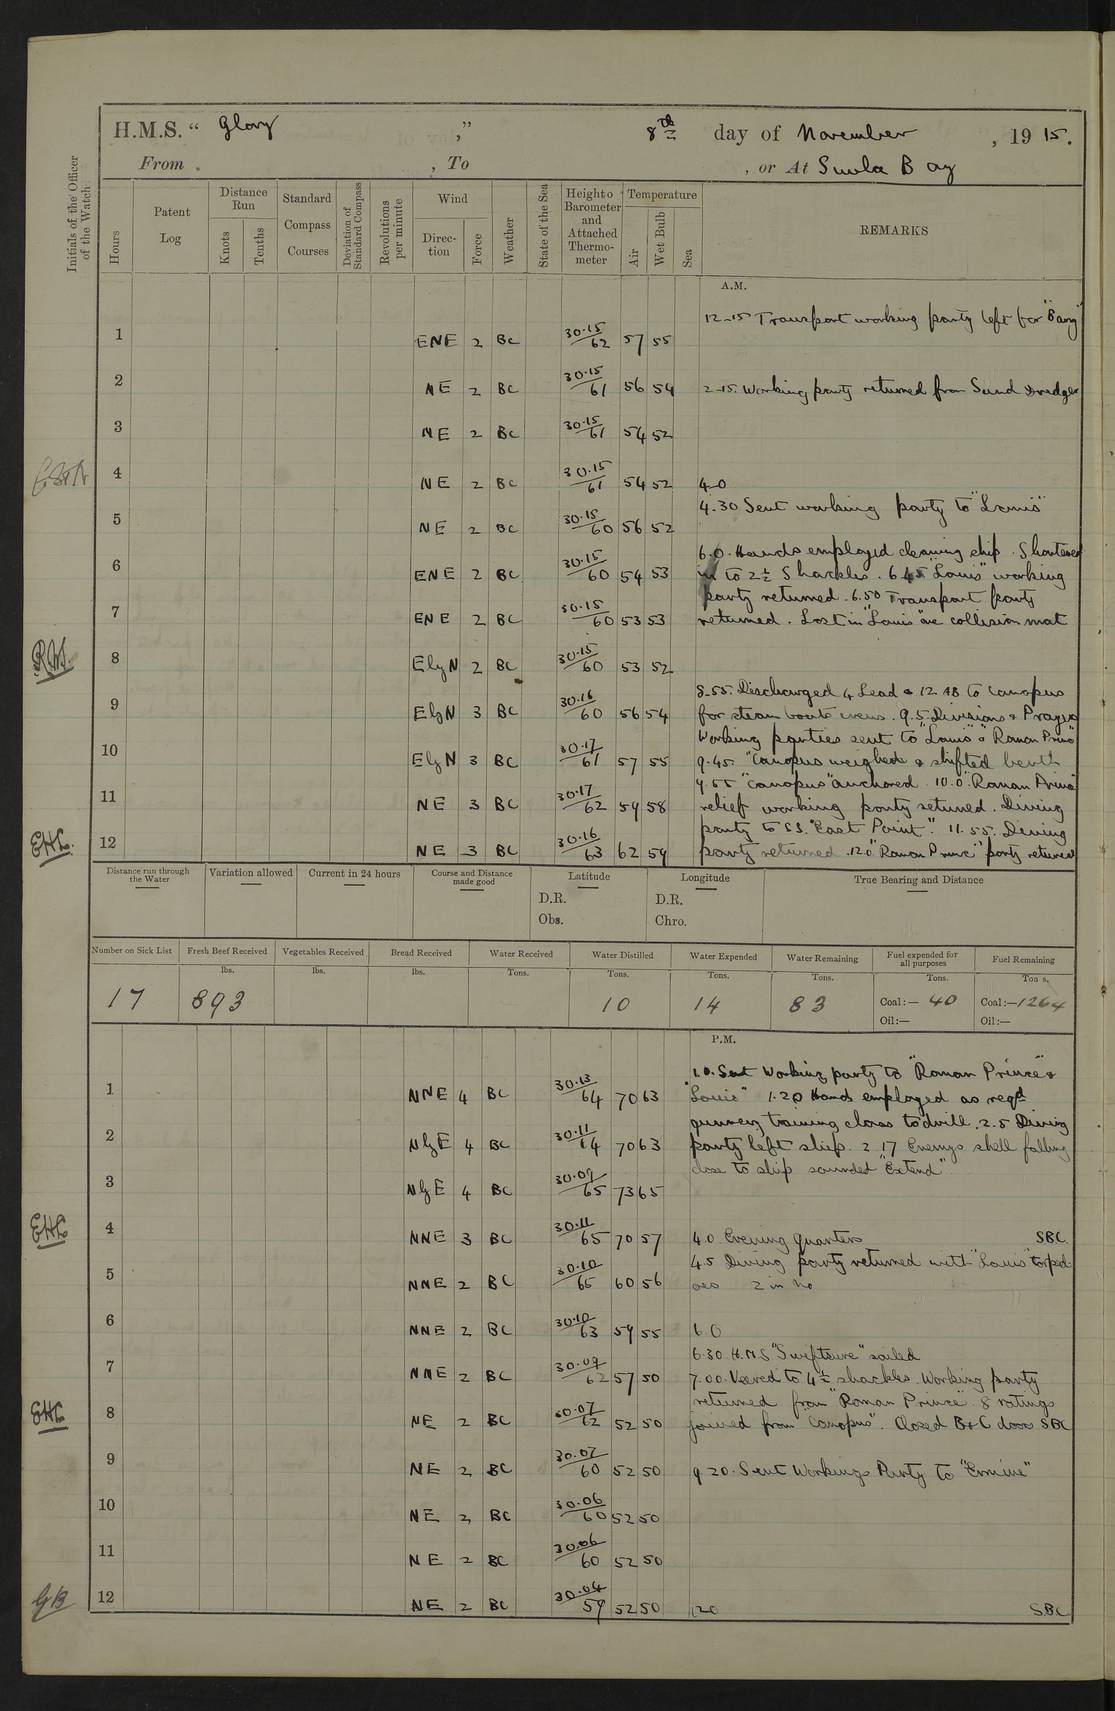 H.M.S. “ Glory ,” 8th day of November , 19 15.
From , To , or At Suvla Bay
Initials of the Officer of the Watch
Hours
Patent Log
Distance Run
Knots
Tenths
Standard Compass Courses
Deviation of Standard Compass
Revolutions per minute
Wind
Direction
Force
Weather
State of the Sea
Height of Barometer and Attached Thermometer
Temperature
Air
Wet Bulb
Sea
REMARKS
A.M.
12-15 Transport working party left for "Barry"
1 ENE 2 BC 30.15/62 57 55
2 NE 2 BC 30.15/61 56 54 2-15. Working party returned from Sand Dredger
3 NE 2 BC 30.15/61 54 52
4 NE 2 BC 30.15/61 54 52 4-0
4.30 Sent working party to "Louis"
5 NE 2 BC 30.15/60 56 52
6.0. Hands employed cleaning ship. Shortened
6 ENE 2 BC 30.15/60 54 53 in to 2½ Shackles. 6.45 "Louis" working
party returned. 6.50 Transport party
7 ENE 2 BC 30.15/60 53 53 returned. Lost in "Louis" one collision mat
8 E by N 2 BC 30.15/60 53 52
8-55. Discharged 4 Lead & 12 AB to Canopus
9 E by N 3 BC 30.16/60 56 54 for steam boats crews. 9.5. Divisions & Prayers
Working parties sent to "Louis" & "Roman Prince"
10 E by N 3 BC 30.17/61 57 55 9.45. "Canopus" weighed & shifted berth
9.55 "Canopus" anchored. 10.0. "Roman Prince"
11 NE 3 BC 30.17/62 59 58 relief working party returned. Diving
party to S.S. "East Point". 11.55. Diving
12 NE 3 BC 30.16/63 62 59 party returned. 12.0 "Roman Prince" party returned
Distance run through the Water
Variation allowed
Current in 24 hours
Course and Distance made good
Latitude
D.R.
Obs.
Longitude
D.R.
Chro.
True Bearing and Distance
Number on Sick List
Fresh Beef Received
Vegetables Received
Bread Received
Water Received
Water Distilled
Water Expended
Water Remaining
Fuel expended for all purposes
Fuel Remaining
lbs. lbs. lbs. Tons. Tons. Tons. Tons. Tons. Tons.
17 893 10 14 83 Coal:— 40 Coal:—1264
Oil:— Oil:—
P.M.
1.0. Sent Working party to "Roman Prince" &
1 NNE 4 BC 30.13/64 70 63 "Louis" 1.20 Hands employed as reqd
gunnery training class to drill. 2.5 Diving
2 N by E 4 BC 30.11/64 70 63 party left ship. 2 17 Enemys shell falling
close to ship sounded "Extend"
3 N by E 4 BC 30.09/65 73 65
4 NNE 3 BC 30.11/65 70 57 4.0 Evening quarters SBC
4.5 Diving party returned with "Louis" torped
5 NNE 2 BC 30.10/65 60 56 oes 2 in No
6 NNE 2 BC 30.10/63 59 55 6.0
6.30 H.M.S "Swiftsure" sailed
7 NNE 2 BC 30.09/62 57 50 7.00. Veered to 4½ shackles. Working party
returned from "Roman Prince". 8 ratings
8 NE 2 BC 30.07/62 52 50 joined from "Canopus". Closed B & C doors SBC
9 NE 2 BC 30.07/60 52 50 9.20. Sent Workings Party to "Ermine"
10 NE 2 BC 30.06/60 52 50
11 NE 2 BC 30.06/60 52 50
12 NE 2 BC 30.04/59 52 50 120 SBC